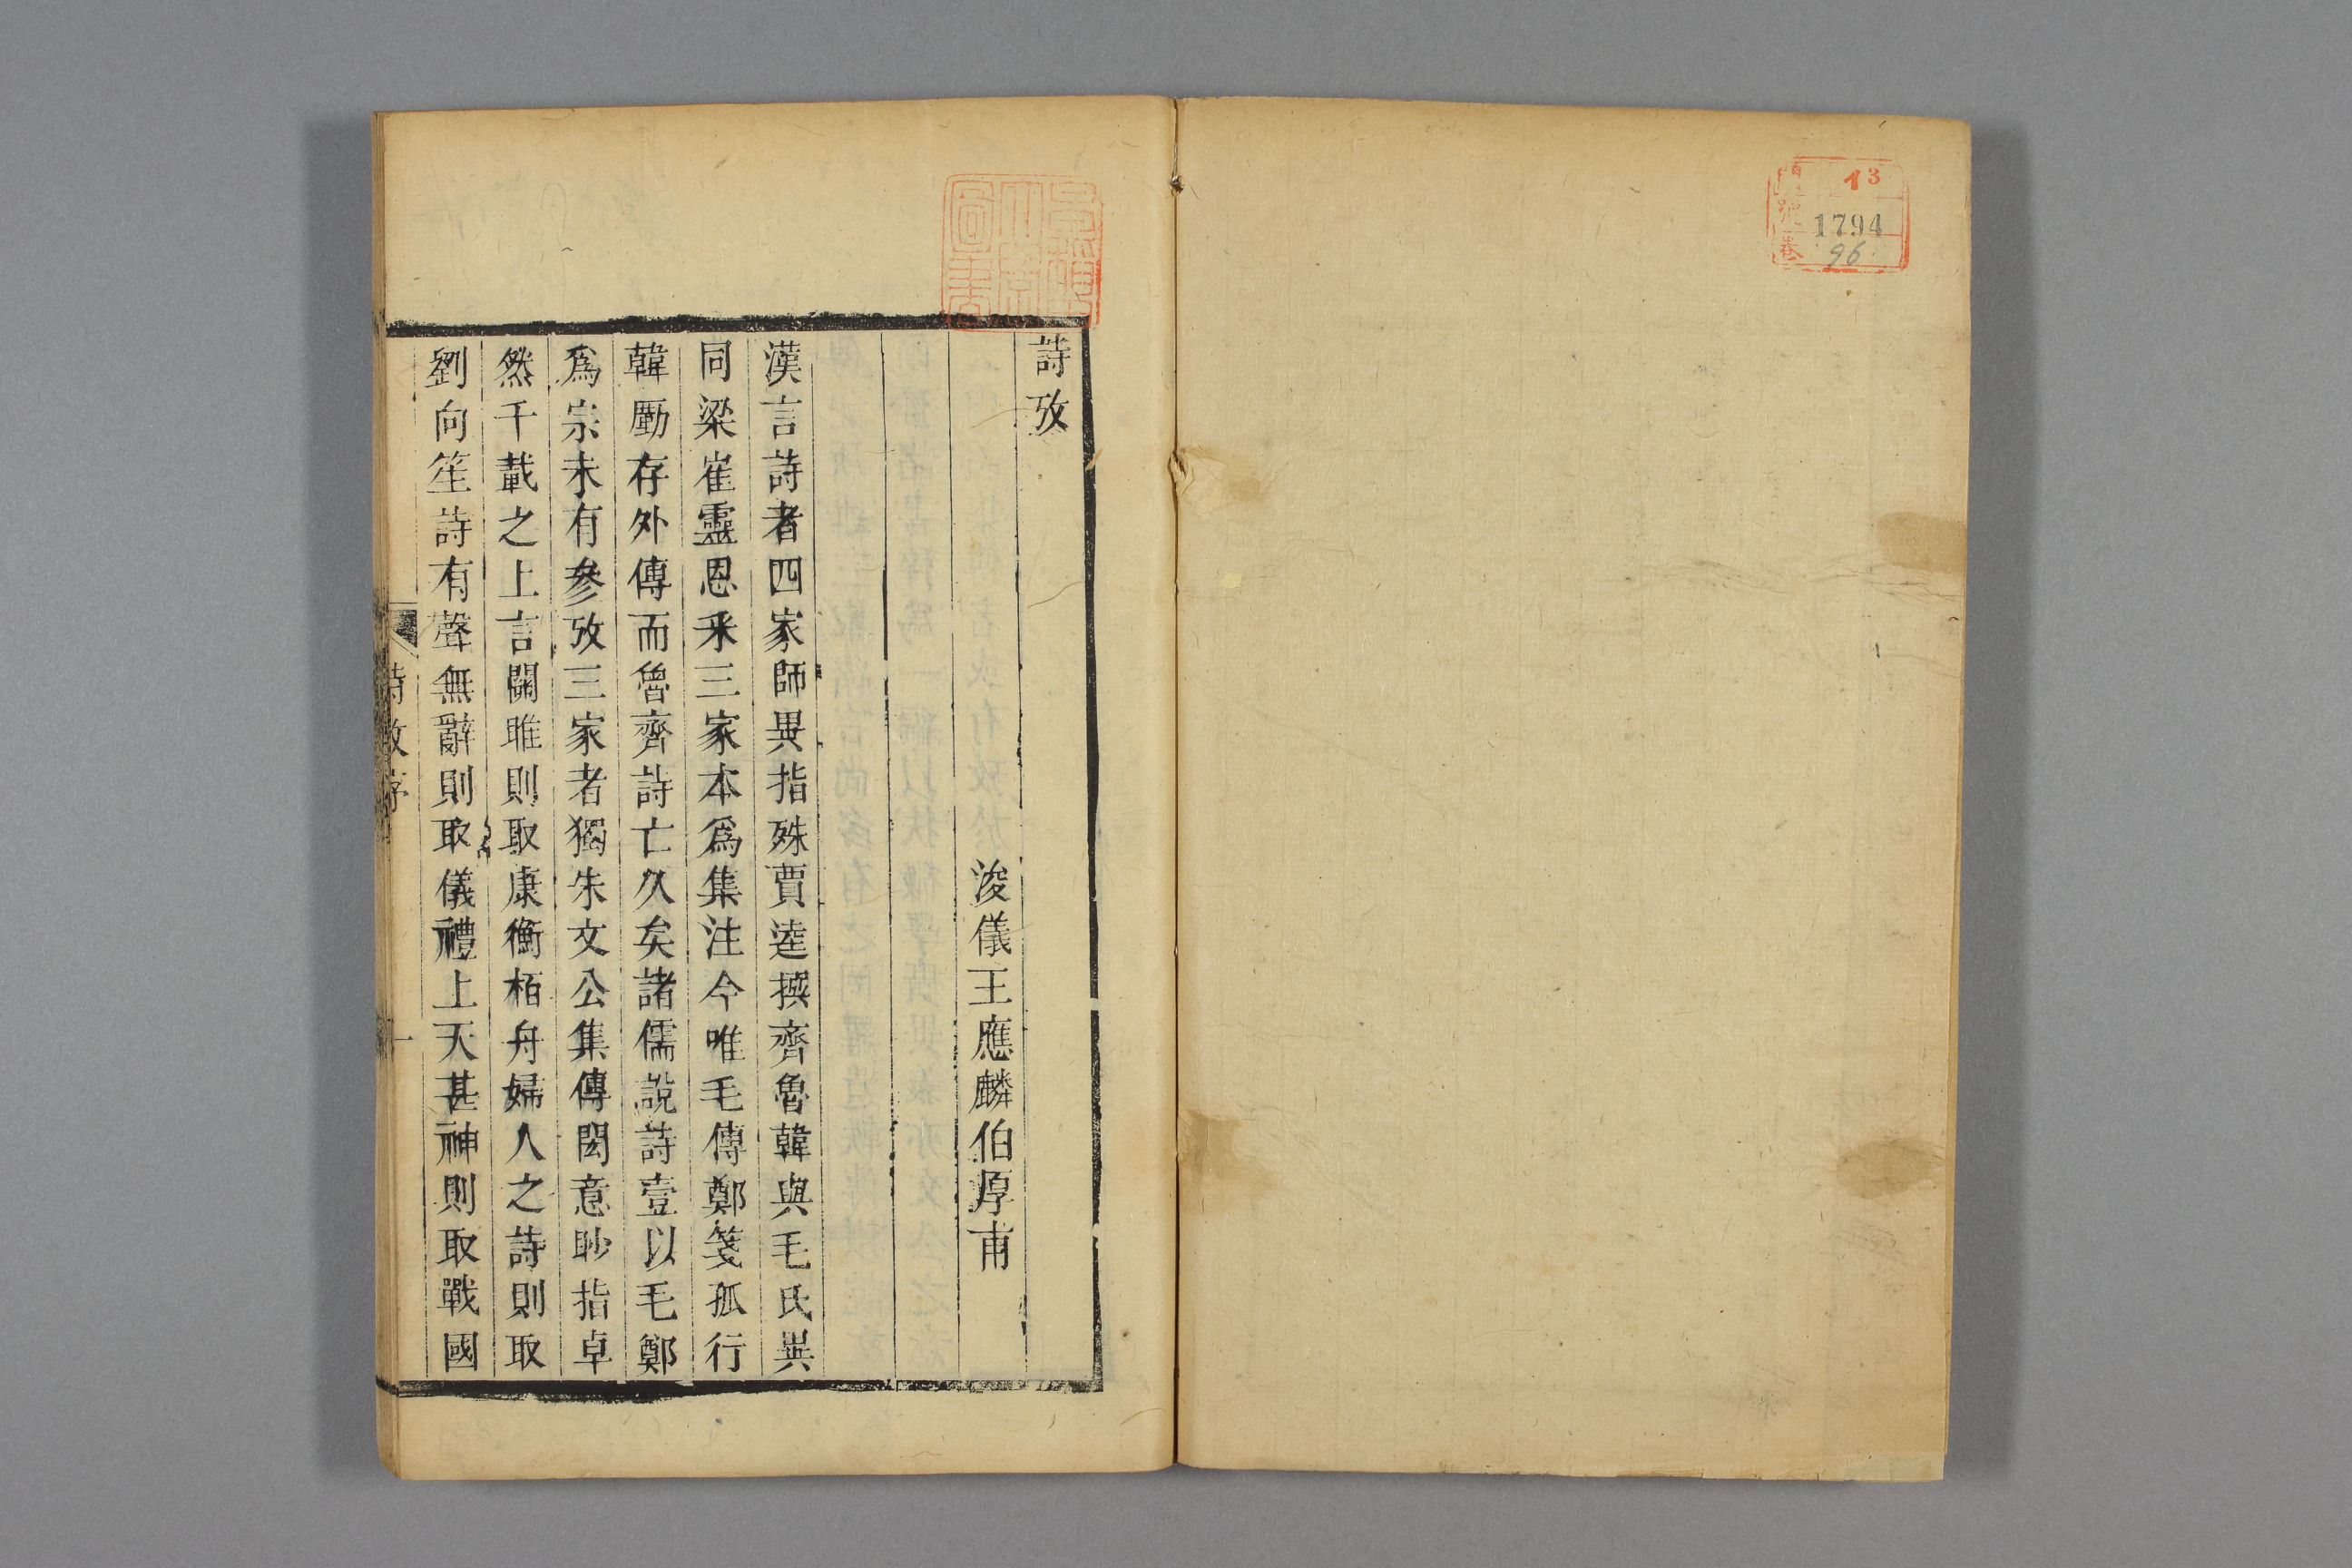 門 13
號 1794
卷 96
詩攷
浚儀王應麟伯厚甫
漢言詩者四家師異指殊賈逵撰齊魯韓與毛氏異
同梁崔靈恩采三家本爲集注今唯毛傳鄭箋孤行
韓劘存外傳而魯齊詩亡久矣諸儒說詩壹以毛鄭
爲宗未有參攷三家者獨朱文公集傳閎意眇指卓
然千載之上言關雎則取康衡栢舟婦人之詩則取
劉向笙詩有聲無辭則取儀禮上天甚神則取戰國
詩攷序
一